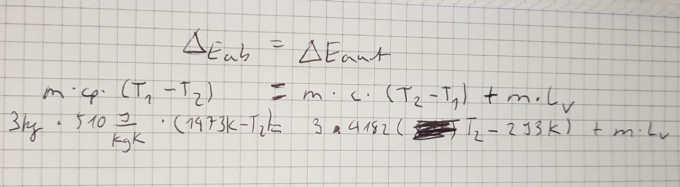 ΔEab = ΔEauf
m · cp · (T₁ - T₂) = m · c · (T₂ - T₁) + m · Lv
3kg · 510 J/kgK · (1473K - T₂) = 3 · 4182 ( T₂ - 293K) + m · Lv